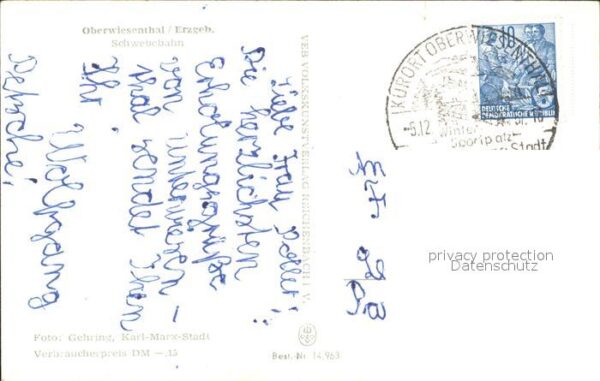 Oberwiesenthal / Erzgeb.
Schwebebahn
Liebe Frau
Die herzlichsten
Erholungsgrüße
von unterm
thal sendet Ihnen
Ihr
Wolfgang
VEB VOLKSKUNSTVERLAG REICHENBACH I. V.
KURORT OBERWIESENTHAL
5.12
Winter-
Sportplatz
Stadt
10
DEUTSCHE
DEMOKRATISCHE REPUBLIK
privacy protection
Datenschutz
Foto: Gehring, Karl-Marx-Stadt
Verbraucherpreis DM —.15
Best.-Nr. 14.963